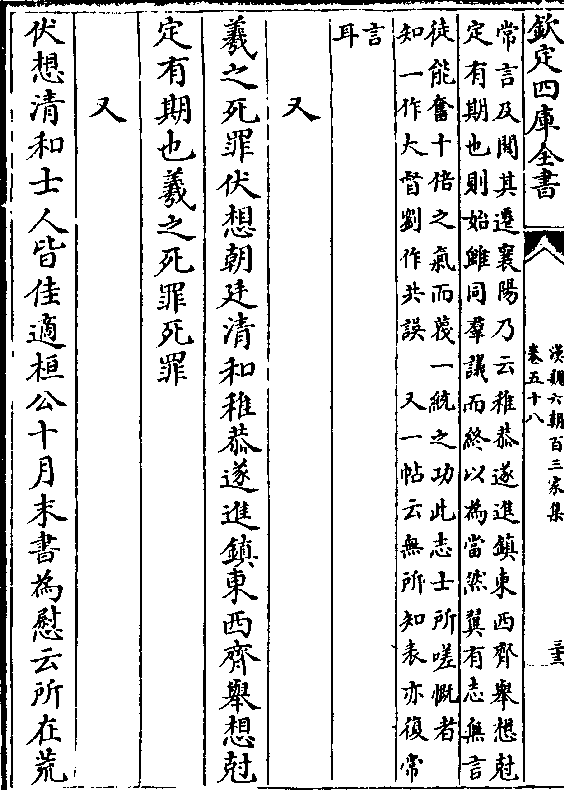 欽定四庫全書
漢魏六朝百三家集
卷五十八
常言及聞其遷襄陽乃云稚恭遂進鎮東西齊舉想尅
定有期也則始雖同羣議而終以為當然翼有志無言
徒能奮十倍之氣而蔑一統之功此志士所嗟慨者
知一作大督劉作共誤　又一帖云無所知表亦復常
言
耳
又
羲之死罪伏想朝廷清和稚恭遂進鎮東西齊舉想尅
定有期也羲之死罪死罪
又
伏想清和士人皆佳適桓公十月末書為慰云所在荒